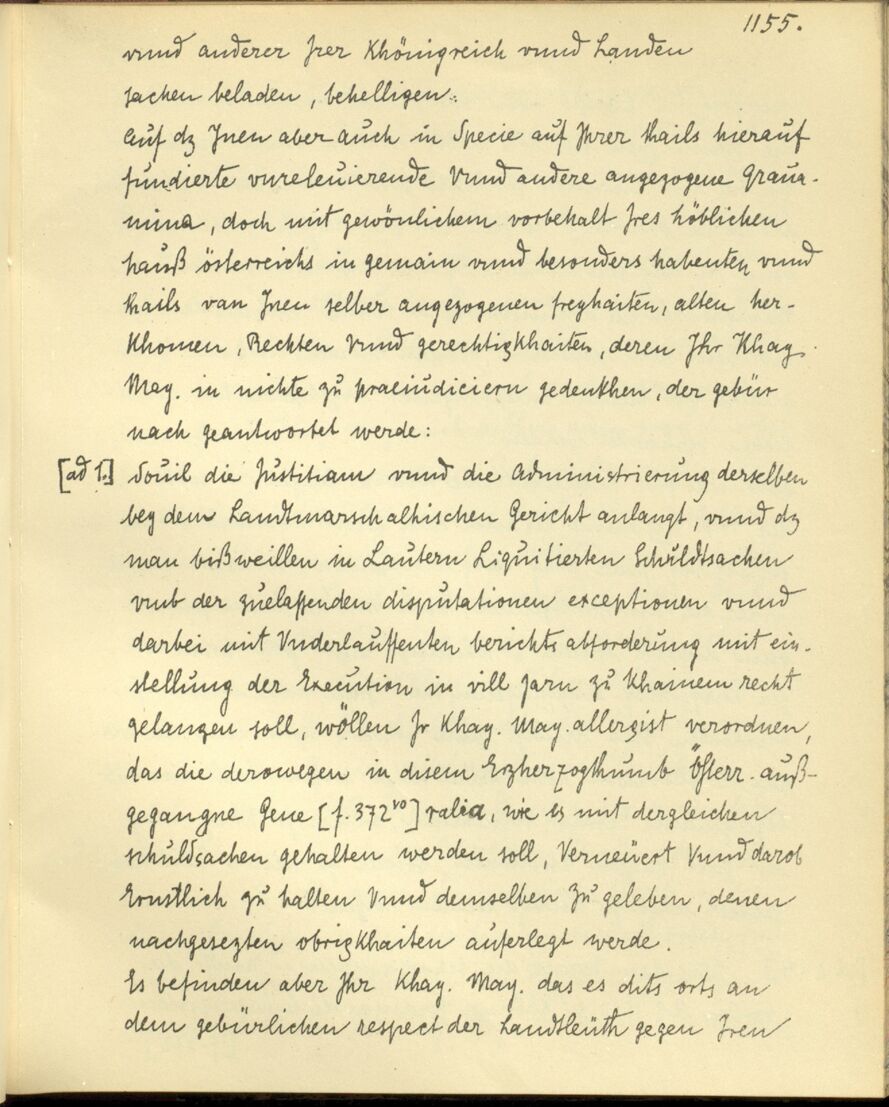 1155.
vnnd anderer Irer Khönigreich vnnd Landen
sachen beladen, behelligen.
Auf dz Inen aber auch in Specie auf Ihrer thails hierauf
fundierte vnreleuierende Vnnd andere angezogene Graua-
mina, doch mit gewönlichem vorbehalt Ires löblichen
hauß österreichs in gemain vnnd besonders habenten, vnnd
thails van Inen selber angezogenen freyhaiten, alten her-
Khomen, Rechten Vnnd gerechtigkhaiten, deren Ihr Khay.
May. in nichte zů praeiudiciern gedenkhen, der gebür
nach geantwortet werde:
[ad 1.] Souil die Justitiam vnnd die Administrierung derselben
bey dem Landtmarschalhischen Gericht anlangt, vnnd dz
man bißweillen in Lautern Liquitierten Schuldtsachen
vmb der zuelassenden disputationen exceptionen vnnd
darbei mit Vnderlauffenten berichts abforderung mit ein-
stellung der Execution in vill Jarn zů Khainem recht
gelangen soll, wöllen Ir Khay. May. allergist verordnen,
das die derowegen in disem Erzherzogthumb Österr. auß-
gegangne Gene [f. 372vo] ralia, wie es mit dergleichen
schuldsachen gehalten werden soll, Verneuert Vnnd darob
Ernstlich zů halten Vnnd demselben zů geleben, denen
nachgesezten obrigkhaiten auferlegt werde.
Es befinden aber Ihr Khay. May. das es dits orts an
dem gebürlichen respect der Landtleüth gegen Iren